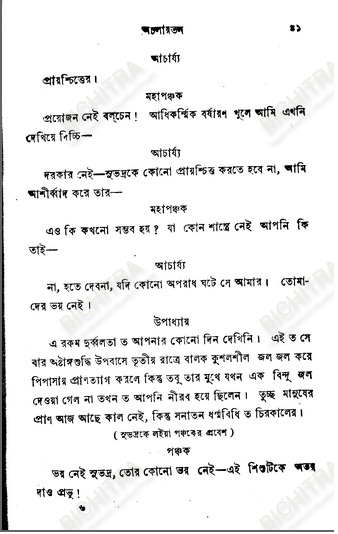 অচলায়তন ৪১
আচার্য্য
প্রায়শ্চিত্তের।
মহাপঞ্চক
প্রয়োজন নেই বল্‌চেন! আধিকর্ম্মিক বর্ষায়ণ খুলে আমি এখনি
দেখিয়ে দিচ্চি—
আচার্য্য
দরকার নেই—সুভদ্রকে কোনো প্রায়শ্চিত্ত করতে হবে না, আমি
আশীর্ব্বাদ করে তার—
মহাপঞ্চক
এও কি কখনো সম্ভব হয়? যা কোন শাস্ত্রে নেই আপনি কি
তাই—
আচার্য্য
না, হতে দেবনা, যদি কোনো অপরাধ ঘটে সে আমার। তোমা-
দের ভয় নেই।
উপাধ্যায়
এ রকম দুর্ব্বলতা ত আপনার কোনো দিন দেখিনি। এই ত সে
বার অষ্টাঙ্গশুদ্ধি উপবাসে তৃতীয় রাত্রে বালক কুশলশীল জল জল করে
পিপাসায় প্রাণত্যাগ করলে কিন্তু তবু তার মুখে যখন এক বিন্দু জল
দেওয়া গেল না তখন ত আপনি নীরব হয়ে ছিলেন। তুচ্ছ মানুষের
প্রাণ আজ আছে কাল নেই, কিন্তু সনাতন ধর্ম্মবিধি ত চিরকালের।
(সুভদ্রকে লইয়া পঞ্চকের প্রবেশ)
পঞ্চক
ভয় নেই সুভদ্র, তোর কোনো ভয় নেই—এই শিশুটিকে অভয়
দাও প্রভু!
৬
BICHITRA